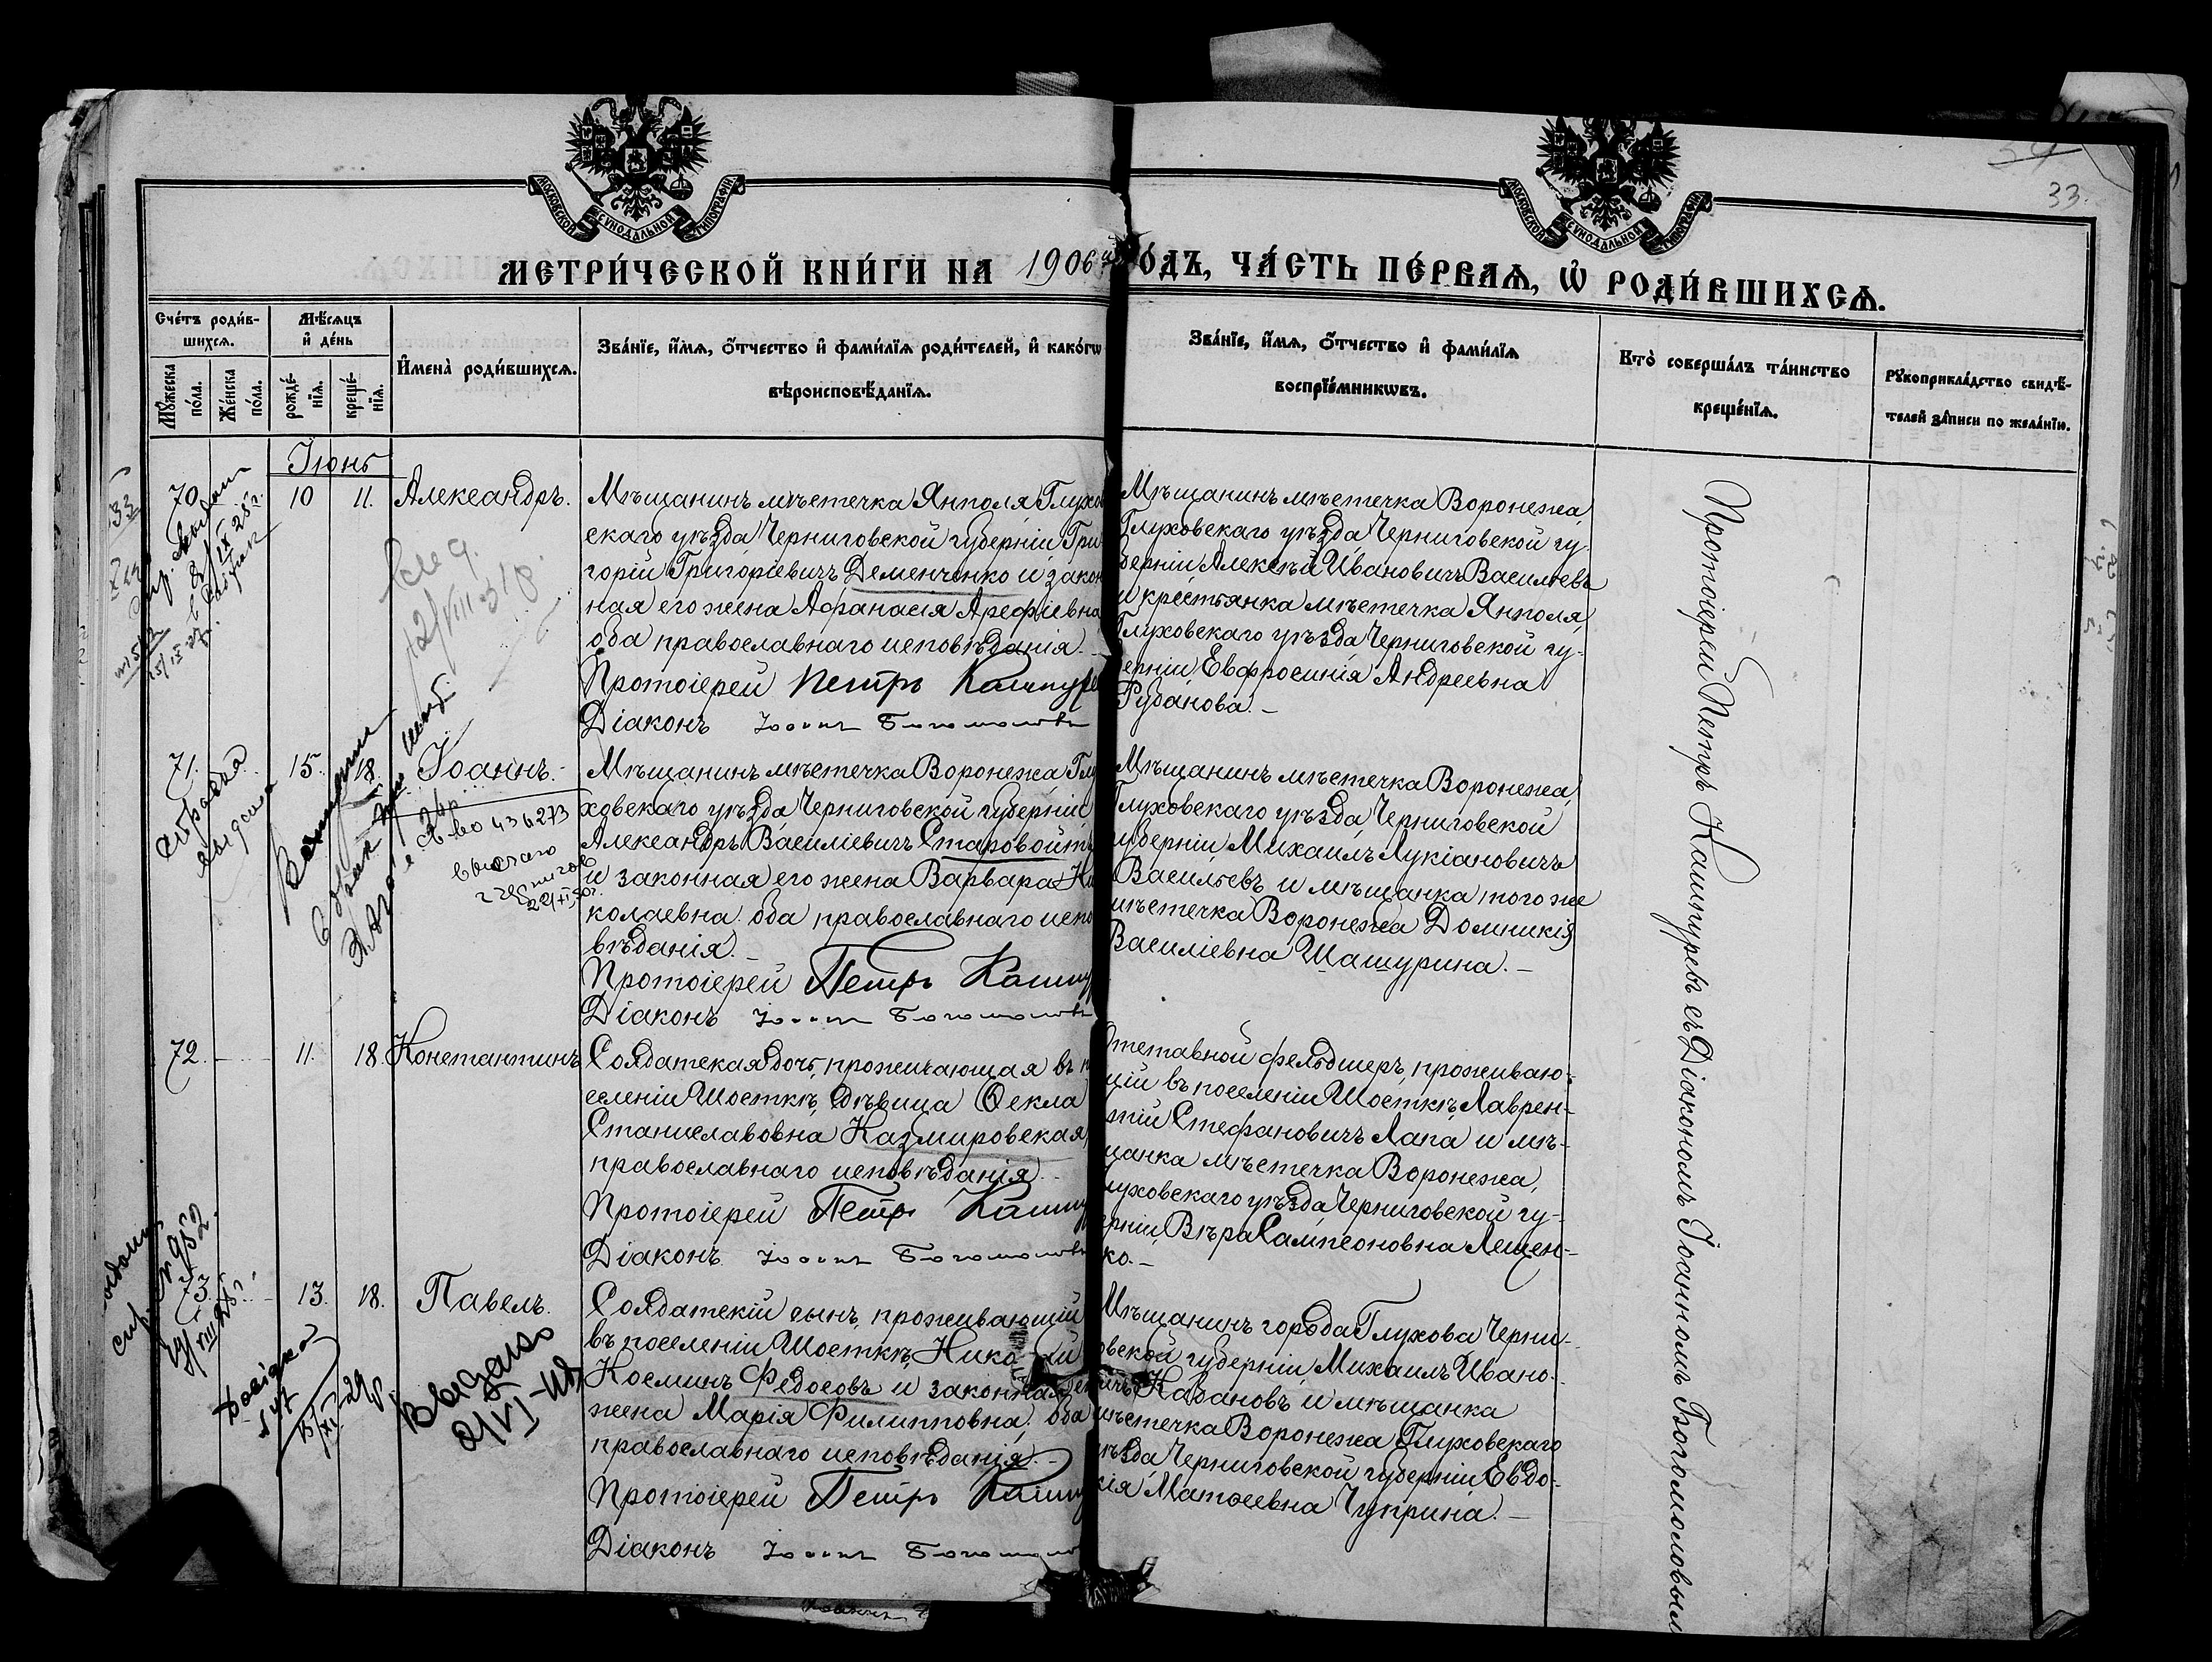 МОСКОВСКОЙ СѴНОДАЛЬНОЙ ТИПОГРАФІИ
МОСКОВСКОЙ СѴНОДАЛЬНОЙ ТИПОГРАФІИ
33.
МЕТРИ́ЧЕСКОЙ КНИ́ГИ НА 1906й
О́ДЪ, ЧА́СТЬ ПЕ́РВАѦ, Ѡ҆ РОДИ́ВШИХСѦ.
Сче́тъ роди́в-
шихсѧ.
Мѣ́сѧцъ
и҆ де́нь
Мꙋ́жеска
по́ла.
Же́нска
по́ла.
рожде́-
нїѧ.
креще́-
нїѧ.
И҆мена̀ роди́вшихсѧ.
Зва́нїе, и҆́мѧ, ѻ҆́тчество и҆ фами́лїѧ роди́телей, и҆ како́гѡ
вѣроисповѣ́данїѧ.
Зва́нїе, и҆́мѧ, ѻ҆́тчество и҆ фами́лїѧ
воспрїе́мникѡвъ.
Кто̀ соверша́лъ та́инство
креще́нїѧ.
Рꙋкоприкла́дство свидѣ́-
телей за́писи по жела́нїю.
Іюнь
70
10
11.
Александръ.
Мѣщанинъ мѣстечка Янполя, Глухов
скаго уѣзда Черниговской губерніи Гри
горій Григоріевичъ Деменченко и закон
ная его жена Афанасія Арефіевна
оба православнаго исповѣданія.
Протоіерей Петръ Кашпуре
Діаконъ Іоаннъ Богомоловъ
Мѣщанинъ мѣстечка Воронежа,
Глуховскаго уѣзда Черниговской гу-
берніи Алексѣй Ивановичъ Васильевъ
и крестьянка мѣстечка Янполя,
Глуховскаго уѣзда Черниговской гу-
ерніи, Евфросинія Андреевна
Рубанова.-
71.
справка
выдана
15.
18.
Іоаннъ.-
св-во 436273
22/XI
Мѣщанинъ мѣстечка Воронежа, Глу
ховскаго уѣзда Черниговской губерніи,
Александръ Василіевичъ Старовойтъ
и законная его жена Варвара Ни
колаевна: оба православнаго испо
вѣданія.-
Протоіерей Петръ Кашпу
Діаконъ Іоаннъ Богомоловъ
Мѣщанинъ мѣстечка Воронежа,
Глуховскаго уѣзда Черниговской
губерніи, Михаилъ Лукіановичъ
Васильевъ и мѣщанка того же
мѣстечка Воронежа Домникія
Василіевна Шашурина.-
72.
11.
18.
Константинъ
Солдатская дочь, проживающая въ п
селеніи Шосткѣ, дѣвица Ѳекла
Станиславовна Казмировская,
православнаго исповѣданія.
Протоіерей Петръ Кашпу
Діаконъ Іоаннъ Богомоловъ
Отставной фельдшеръ, проживаю-
щій въ поселеніи Шосткѣ, Лаврен-
тій Стефановичъ Лапа и мѣ-
щанка мѣстечка Воронежа,
луховскаго уѣзда Черниговской гу-
ерніи, Вѣра Сампсоновна Лещен-
ко.-
№ 952.
73.
13.
18.
Павелъ.
Видано
2/VI-41
Солдатскій сынъ, проживающій
въ поселеніи Шосткѣ, Нико й
Косминъ Федосовъ и законная
жена Марія Филипповна; оба
православнаго исповѣданія.-
Протоіерей Петръ Кашпу
Діаконъ Іоаннъ Богомолов
Мѣщанинъ города Глухова Черни-
овской губерніи, Михаилъ Ивано-
вичъ Кабановъ и мѣщанка
мѣстечка Воронежа Глуховскаго
уѣзда Черниговской губерніи Евдо-
кія Матѳеевна Чуприна.-
Протоіерей Петръ Кашпуревъ съ Діакономъ Іоанномъ Богомоловым